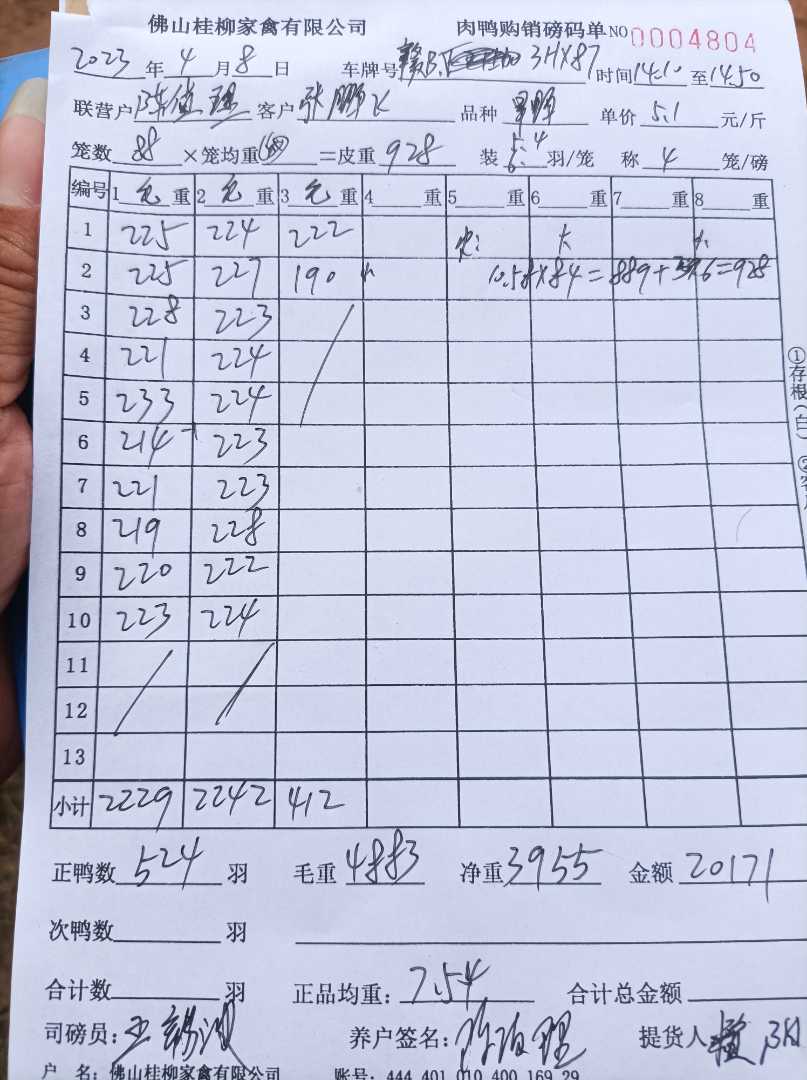 佛山桂柳家禽有限公司 肉鸭购销磅码单 NO 0004804
2023 年 4 月 8 日 车牌号 赣B. 3HX87 时间 14:10 至 14:50
联营户 客户 张鹏飞 品种 单价 5.1 元/斤
笼数 88 ×笼均重 =皮重 928 装 羽/笼 称 4 笼/磅
编号 1 毛 重 2 毛 重 3 毛 重 4 重 5 重 6 重 7 重 8 重
1 225 224 222
2 225 227 190 10.58×84=889+ =928
3 228 223
4 221 224
5 233 224
6 214 223
7 221 223
8 219 228
9 220 222
10 223 224
11
12
13
小计 2229 2242 412
正鸭数 524 羽 毛重 4883 净重 3955 金额 20171
次鸭数 羽
合计数 羽 正品均重: 7.54 合计总金额
司磅员: 养户签名: 提货人
户 名: 佛山桂柳家禽有限公司 账号: 444 401 010 400 169 29
①存根(白)